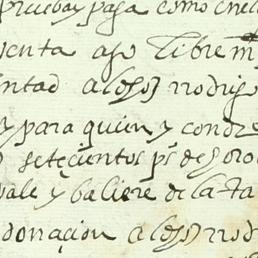 prueba y paga como en el
venta a go libre m
ntad a los s rrodrigo
y para quien y con dre
setecientos ps de oro
vale y baliere de la ta
donaçion a los s rrod